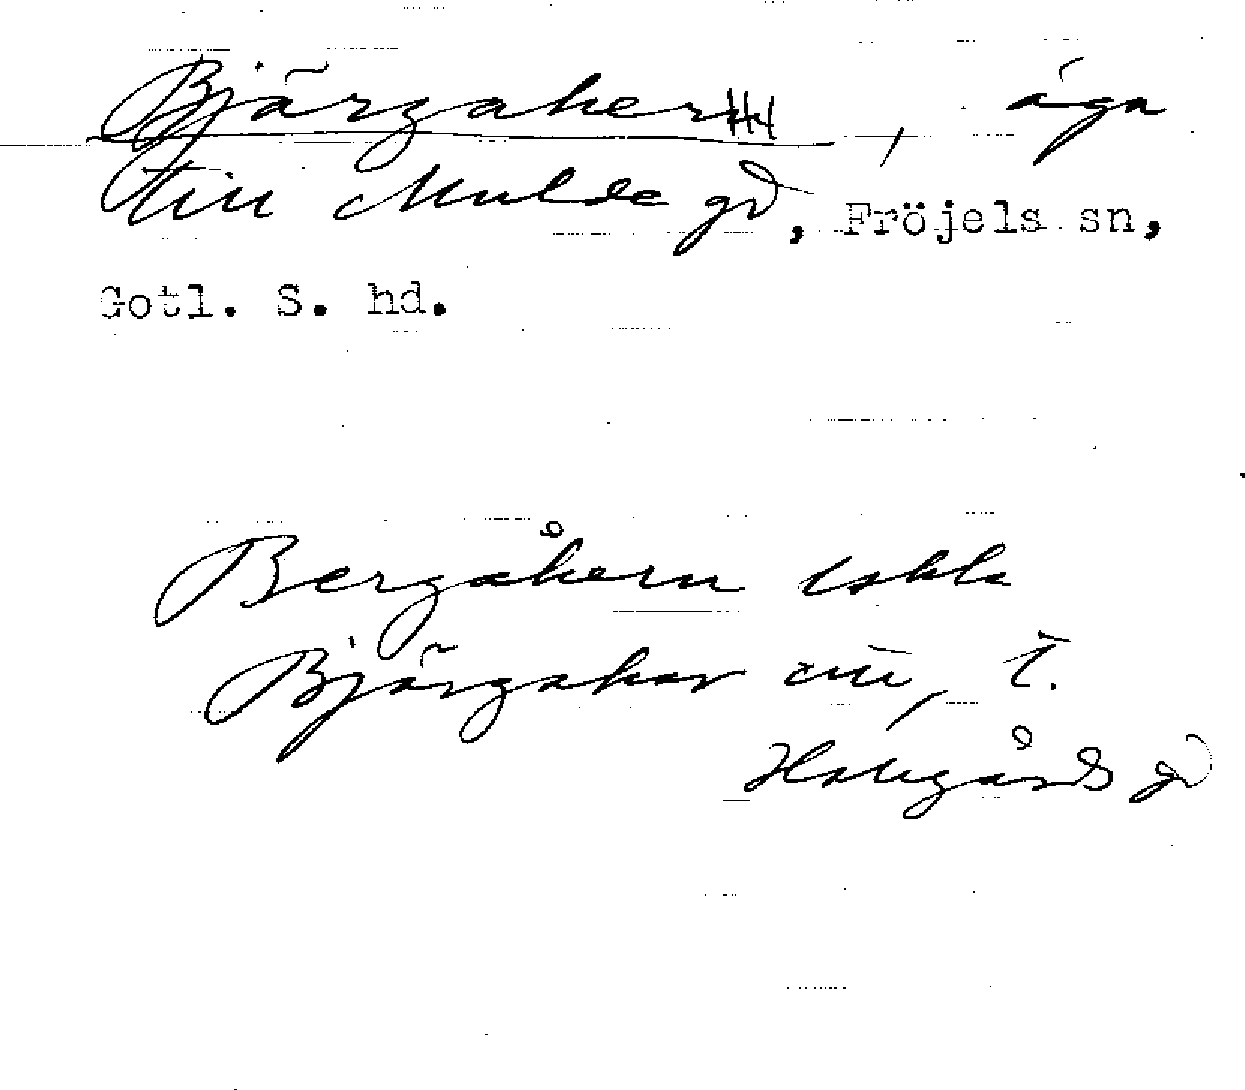 Bjärgaker, äga
till Mulde gd, Fröjels sn,
Gotl. S. hd.
Bergåkern
Bjärgakar t.
gd